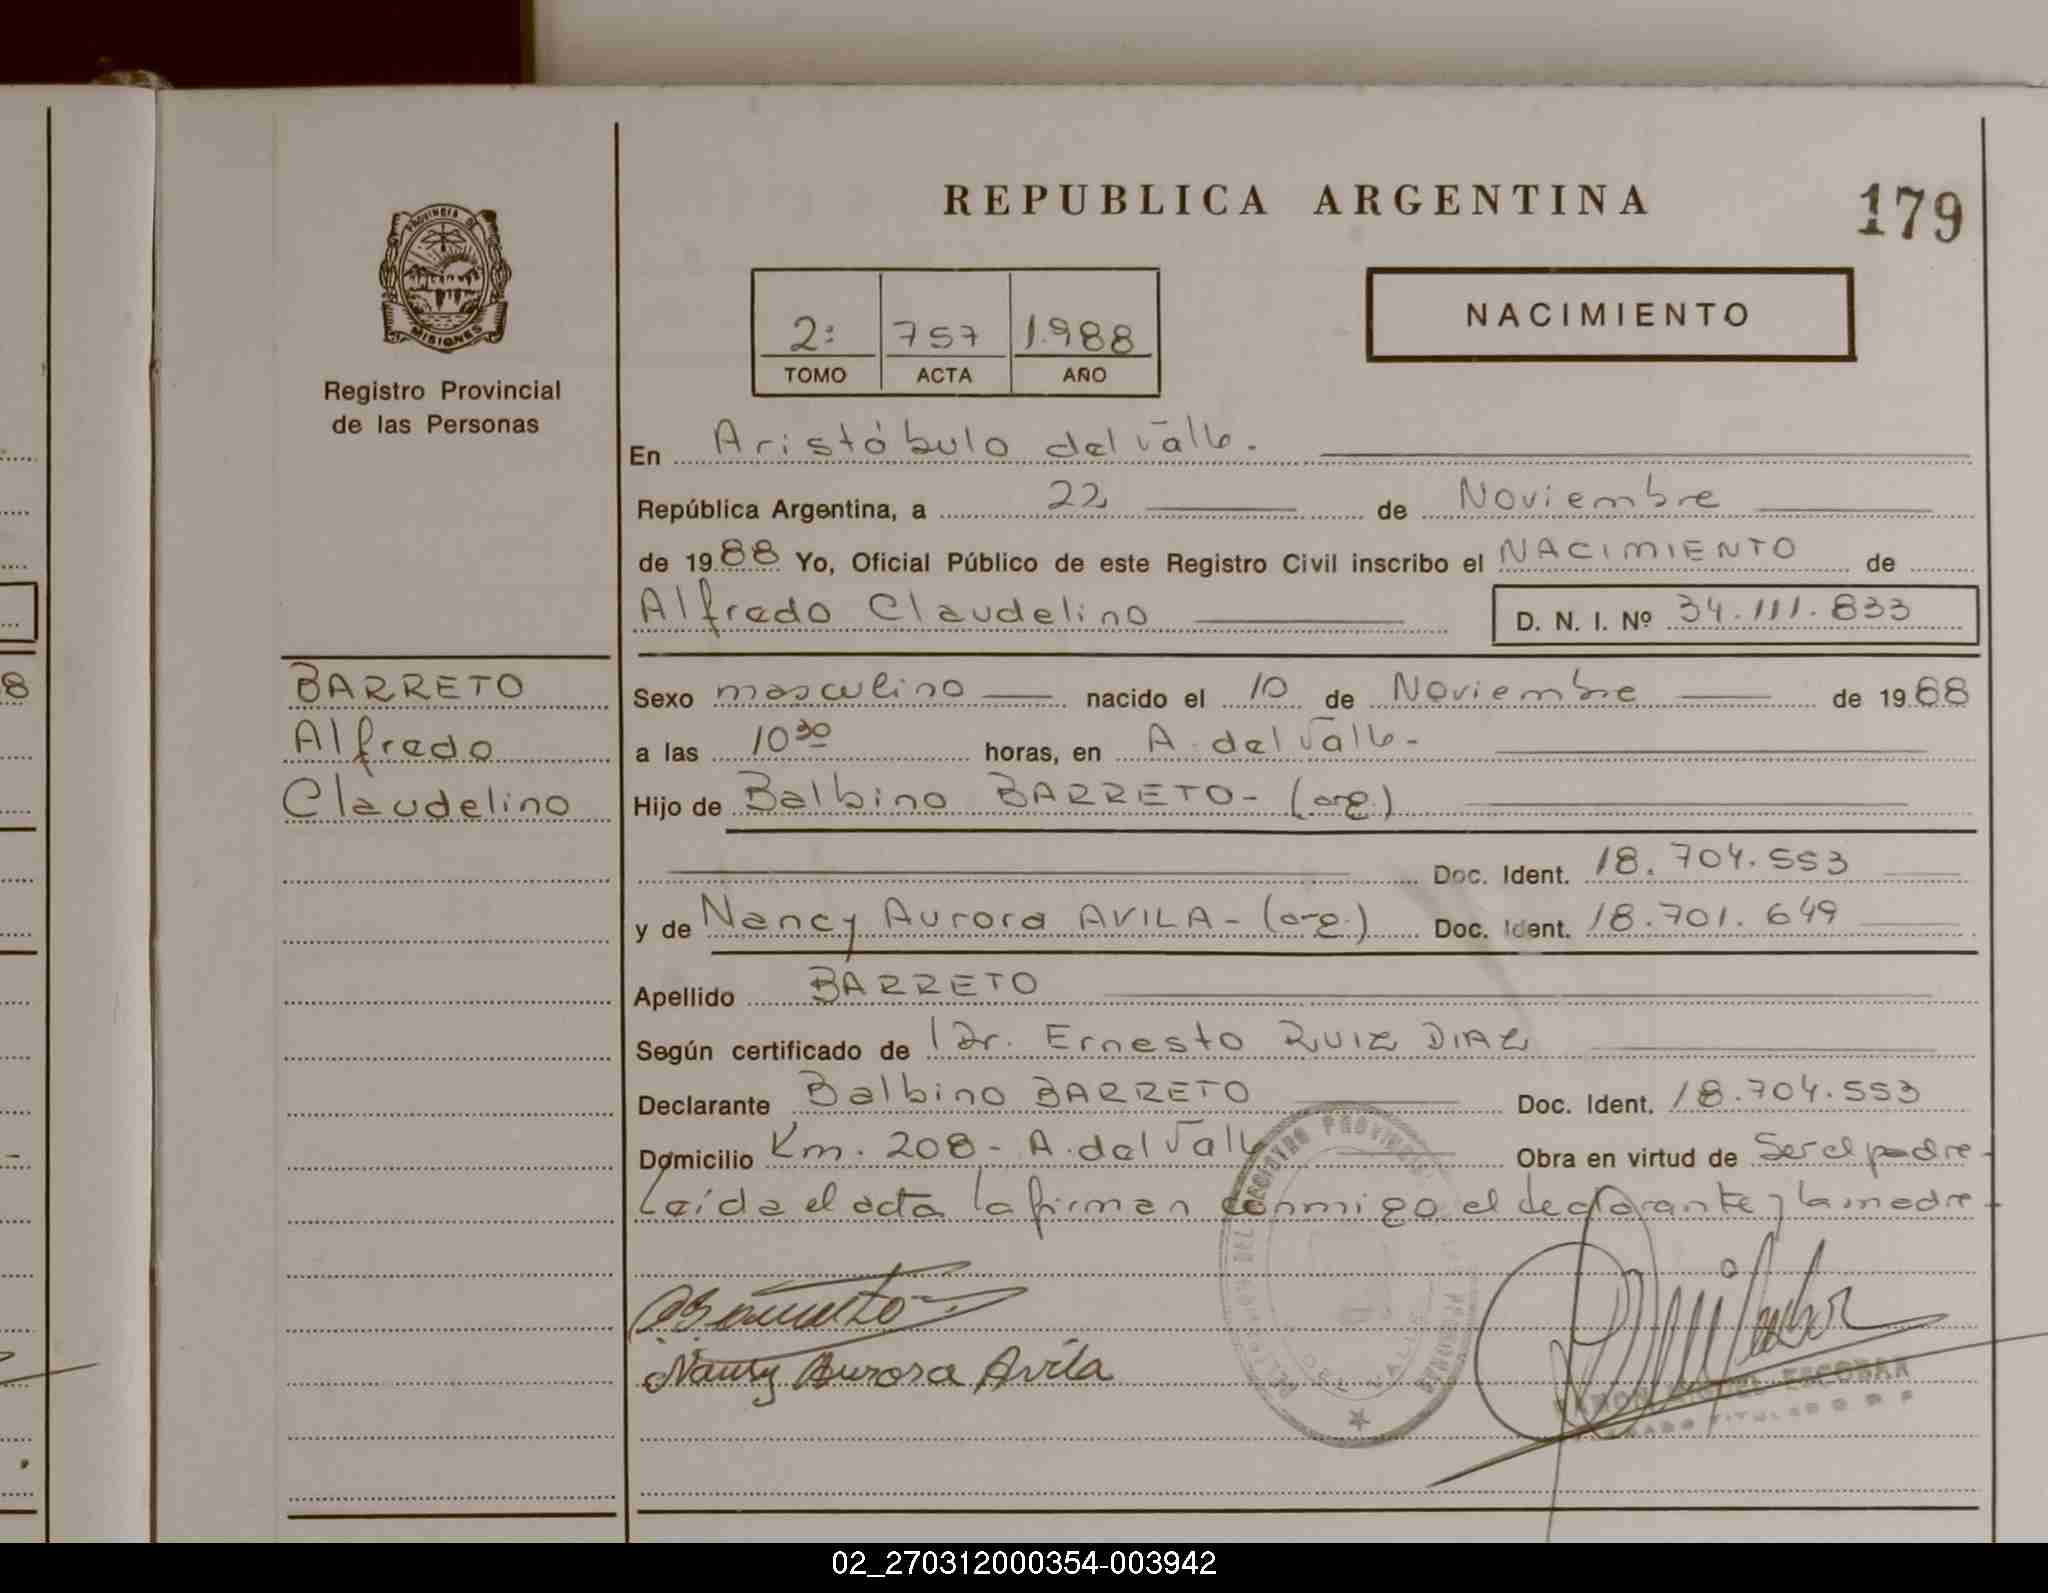 REPUBLICA ARGENTINA
179
PROVINCIA DE
MISIONES
Registro Provincial
de las Personas
2: 757 1.988
TOMO ACTA AÑO
NACIMIENTO
En Aristóbulo del Valle.
República Argentina, a 22 de Noviembre
de 1988 Yo, Oficial Público de este Registro Civil inscribo el NACIMIENTO de
Alfredo Claudelino D. N. I. Nº 34.111.833
BARRETO
Alfredo
Claudelino
Sexo masculino nacido el 10 de Noviembre de 1988
a las 10 30 horas, en A. del Valle-
Hijo de Balbino BARRETO- (arg.)
Doc. Ident. 18.704.553
y de Nancy Aurora AVILA- (arg.) Doc. Ident. 18.701.649
Apellido BARRETO
Según certificado de Dr. Ernesto RUIZ DIAZ
Declarante Balbino BARRETO Doc. Ident. 18.704.553
Domicilio Km. 208- A. del Valle Obra en virtud de Ser el padre-
Leída el acta la firman conmigo el declarante y la madre-
Barreto
Nancy Aurora Avila
RAMON MIGUEL ESCOBAR
DEL VALLE
02_270312000354-003942